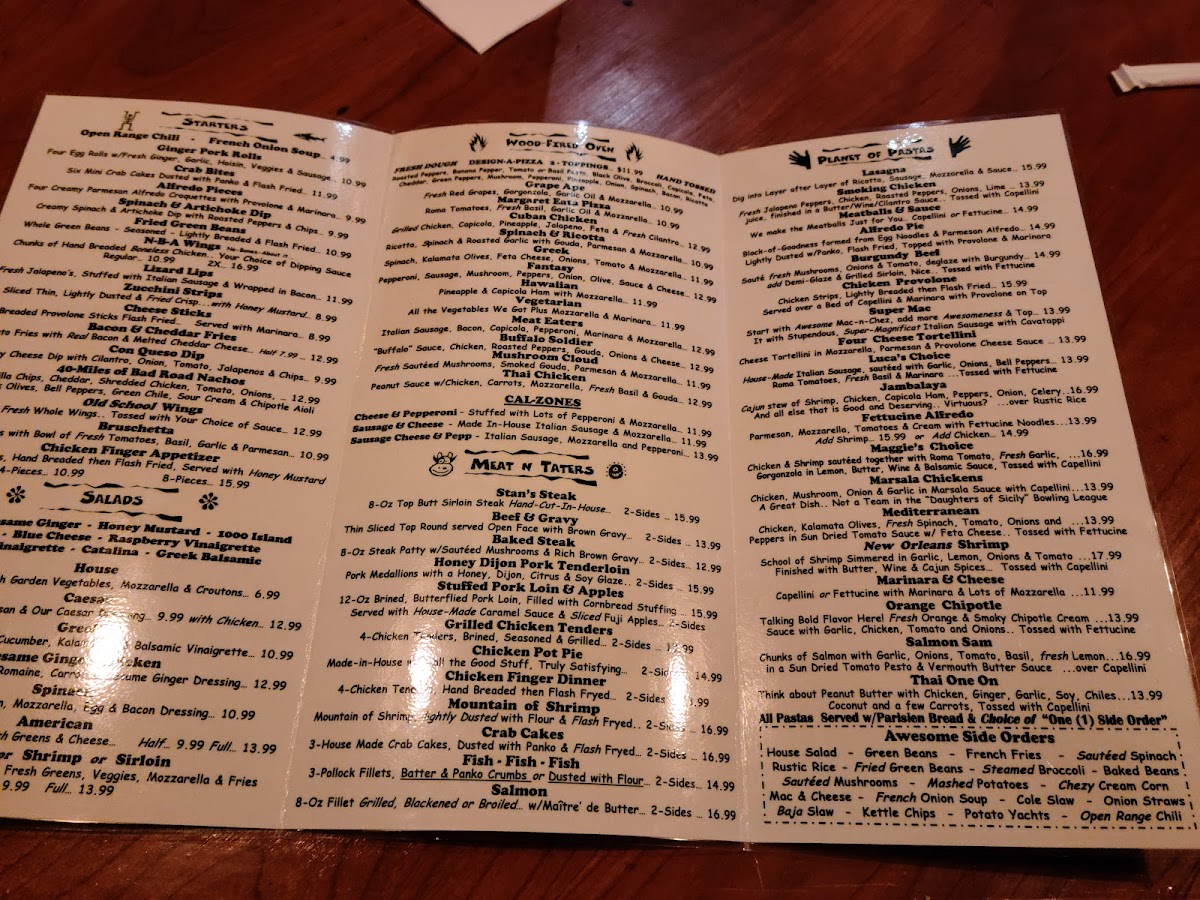 STARTERS
Open Range Chill - French Onion Soup.. 4.99
Ginger Pork Rolls
Four Egg Rolls w/Fresh Ginger, Garlic, Hoisin, Veggies & Sausage.. 10.99
Crab Bites
Six Mini Crab Cakes Dusted with Panko & Flash Fried.. 11.99
Alfredo Pieces
Four Creamy Parmesan Alfredo Croquettes with Provolone & Marinara.. 9.99
Spinach & Artichoke Dip
Creamy Spinach & Artichoke Dip with Roasted Peppers & Chips.. 9.99
Fried Green Beans
Whole Green Beans - Seasoned - Lightly Breaded & Flash Fried.. 10.99
N-B-A Wings
Chunks of Hand Breaded Boneless Chicken.. Your Choice of Dipping Sauce
Regular.. 10.99 2X.. 16.99
Lizard Lips
Fresh Jalapeno's, Stuffed with Italian Sausage & Wrapped in Bacon.. 11.99
Zucchini Strips
Sliced Thin, Lightly Dusted & Fried Crisp...with Honey Mustard.. 8.99
Cheese Sticks
Breaded Provolone Sticks Flash Fried.. Served with Marinara.. 8.99
Bacon & Cheddar Fries
Fries with Real Bacon & Melted Cheddar Cheese.. Half 7.99 ... 12.99
Con Queso Dip
Cheese Dip with Cilantro, Onion, Tomato, Jalapenos & Chips.. 9.99
40-Miles of Bad Road Nachos
Chips, Cheddar, Shredded Chicken, Tomato, Onions, .. 12.99
Olives, Bell Peppers, Green Chile, Sour Cream & Chipotle Aioli
Old School Wings
Fresh Whole Wings.. Tossed with Your Choice of Sauce.. 12.99
Bruschetta
with Bowl of Fresh Tomatoes, Basil, Garlic & Parmesan.. 10.99
Chicken Finger Appetizer
Hand Breaded then Flash Fried, Served with Honey Mustard
4-Pieces.. 10.99 8-Pieces.. 15.99
SALADS
Sesame Ginger - Honey Mustard - 1000 Island
- Blue Cheese - Raspberry Vinaigrette
Vinaigrette - Catalina - Greek Balsamic
House
Garden Vegetables, Mozzarella & Croutons.. 6.99
Caesar
& Our Caesar Dressing.. 9.99 with Chicken.. 12.99
Greek
Cucumber, Balsamic Vinaigrette.. 10.99
Sesame Ginger Chicken
Romaine, Ginger Dressing... 12.99
Spinach
Mozzarella, Egg & Bacon Dressing... 10.99
American
Greens & Cheese.. Half.. 9.99 Full.. 13.99
or Shrimp or Sirloin
Fresh Greens, Veggies, Mozzarella & Fries
9.99 Full... 13.99
WOOD-FIRED OVEN
FRESH DOUGH DESIGN-A-PIZZA 2-TOPPINGS $11.99 HAND TOSSED
Roasted Peppers, Banana Pepper, Tomato or Basil Pesto, Black Olive, Broccoli, Capicola, Feta,
Cheddar, Green Peppers, Mushroom, Pepperoni, Pineapple, Onion, Spinach, Bacon, Ricotta
Grape Ape
Fresh Red Grapes, Gorgonzola, Garlic Oil & Mozzarella.. 10.99
Margaret Eata Pizza
Roma Tomatoes, Fresh Basil, Garlic Oil & Mozzarella.. 10.99
Cuban Chicken
Grilled Chicken, Capicolo, Pineapple, Jalapeno, Feta & Fresh Cilantro.. 12.99
Spinach & Ricotta
Ricotta, Spinach & Roasted Garlic with Gouda, Parmesan & Mozzarella.. 10.99
Greek
Spinach, Kalamata Olives, Feta Cheese, Onions, Tomato & Mozzarella.. 11.99
Fantasy
Pepperoni, Sausage, Mushroom, Peppers, Onion, Olive, Sauce & Cheese.. 12.99
Hawaiian
Pineapple & Capicola Ham with Mozzarella.. 11.99
Vegetarian
All the Vegetables We Got Plus Mozzarella & Marinara.. 11.99
Meat Eaters
Italian Sausage, Bacon, Capicola, Pepperoni, Marinara & Mozzarella.. 12.99
Buffalo Soldier
"Buffalo" Sauce, Chicken, Roasted Peppers, Gouda, Onions & Cheese.. 12.99
Mushroom Cloud
Fresh Sautéed Mushrooms, Smoked Gouda, Parmesan & Mozzarella.. 11.99
Thai Chicken
Peanut Sauce w/Chicken, Carrots, Mozzarella, Fresh Basil & Gouda... 12.99
CAL-ZONES
Cheese & Pepperoni - Stuffed with Lots of Pepperoni & Mozzarella.. 11.99
Sausage & Cheese - Made In-House Italian Sausage & Mozzarella.. 11.99
Sausage Cheese & Pepp - Italian Sausage, Mozzarella and Pepperoni.. 13.99
MEAT N TATERS
Stan's Steak
8-Oz Top Butt Sirloin Steak Hand-Cut-In-House.. 2-Sides ... 15.99
Beef & Gravy
Thin Sliced Top Round served Open Face with Brown Gravy.. 2-Sides.. 13.99
Baked Steak
8-Oz Steak Patty w/Sautéed Mushrooms & Rich Brown Gravy.. 2-Sides.. 12.99
Honey Dijon Pork Tenderloin
Pork Medallions with a Honey, Dijon, Citrus & Soy Glaze.. 2-Sides .. 15.99
Stuffed Pork Loin & Apples
12-Oz Brined, Butterflied Pork Loin, Filled with Cornbread Stuffing ... 15.99
Served with House-Made Caramel Sauce & Sliced Fuji Apples.. 2-Sides
Grilled Chicken Tenders
4-Chicken Tenders, Brined, Seasoned & Grilled.. 2-Sides ..
Chicken Pot Pie
Made-in-House all the Good Stuff, Truly Satisfying.. 14.99
Chicken Finger Dinner
4-Chicken Hand Breaded then Flash Fryed.. 2-Sides
Mountain of Shrimp
Mountain of Shrimp, Lightly Dusted with Flour & Flash Fryed.. 2-Sides .. 16.99
Crab Cakes
3-House Made Crab Cakes, Dusted with Panko & Flash Fryed.. 2-Sides .. 16.99
Fish - Fish - Fish
3-Pollock Fillets, Batter & Panko Crumbs or Dusted with Flour.. 2-Sides.. 14.99
Salmon
8-Oz Fillet Grilled, Blackened or Broiled.. w/Maître' de Butter.. 2-Sides .. 16.99
PLANET OF PASTAS
Lasagna
Dig into Layer after Layer of Ricotta, Sausage, Mozzarella & Sauce.. 15.99
Smoking Chicken
Fresh Jalapeno Peppers, Chicken, Roasted Peppers, Onions, Lime ... 13.99
juice, finished in a Butter/Wine/Cilantro Sauce.. Tossed with Capellini
Meatballs & Sauce
We make the Meatballs Just for You.. Capellini or Fettucine.. 14.99
Alfredo Pie
Block-of-Goodness formed from Egg Noodles & Parmesan Alfredo.. 14.99
Lightly Dusted w/Panko, Flash Fried, Topped with Provolone & Marinara
Burgundy Beef
Sauté fresh Mushrooms, Onions & Tomato, deglaze with Burgundy.. 14.99
add Demi-Glaze & Grilled Sirloin, Nice.. Tossed with Fettucine
Chicken Provolone
Chicken Strips, Lightly Breaded then Flash Fried.. 15.99
Served over a Bed of Capellini & Marinara with Provolone on Top
Super Mac
Start with Awesome Mac-n-Chez, add more Awesomeness & Top.. 13.99
It with Stupendous, Super-Magnificat Italian Sausage with Cavatappi
Four Cheese Tortellini
Cheese Tortellini in Mozzarella, Parmesan & Provolone Cheese Sauce ... 13.99
Luca's Choice
House-Made Italian Sausage, sautéed with Garlic, Onions, Bell Peppers.. 13.99
Roma Tomatoes, Fresh Basil & Marinara ...Tossed with Fettucine
Jambalaya
Cajun stew of Shrimp, Chicken, Capicola Ham, Peppers, Onion, Celery..16.99
And all else that is Good and Deserving.. Virtuous? ...over Rustic Rice
Fettucine Alfredo
Parmesan, Mozzarella, Tomatoes & Cream with Fettucine Noodles...13.99
Add Shrimp.. 15.99 or Add Chicken.. 14.99
Maggie's Choice
Chicken & Shrimp sautéed together with Roma Tomato, Fresh Garlic, ...16.99
Gorgonzola in Lemon, Butter, Wine & Balsamic Sauce, Tossed with Capellini
Marsala Chickens
Chicken, Mushroom, Onion & Garlic in Marsala Sauce with Capellini...13.99
A Great Dish.. Not a Team in the "Daughters of Sicily" Bowling League
Mediterranean
Chicken, Kalamata Olives, Fresh Spinach, Tomato, Onions and ...13.99
Peppers in Sun Dried Tomato Sauce w/ Feta Cheese.. Tossed with Fettucine
New Orleans Shrimp
School of Shrimp Simmered in Garlic, Lemon, Onions & Tomato ...17.99
Finished with Butter, Wine & Cajun Spices... Tossed with Capellini
Marinara & Cheese
Capellini or Fettucine with Marinara & Lots of Mozzarella ...11.99
Orange Chipotle
Talking Bold Flavor Here! Fresh Orange & Smoky Chipotle Cream ...13.99
Sauce with Garlic, Chicken, Tomato and Onions.. Tossed with Fettucine
Salmon Sam
Chunks of Salmon with Garlic, Onions, Tomato, Basil, fresh Lemon...16.99
in a Sun Dried Tomato Pesto & Vermouth Butter Sauce ...over Capellini
Thai One On
Think about Peanut Butter with Chicken, Ginger, Garlic, Soy, Chiles...13.99
Coconut and a few Carrots, Tossed with Capellini
All Pastas Served w/Parisien Bread & Choice of "One (1) Side Order"
Awesome Side Orders
House Salad - Green Beans - French Fries - Sautéed Spinach
Rustic Rice - Fried Green Beans - Steamed Broccoli - Baked Beans
Sautéed Mushrooms - Mashed Potatoes - Chezy Cream Corn
Mac & Cheese - French Onion Soup - Cole Slaw - Onion Straws
Baja Slaw - Kettle Chips - Potato Yachts - Open Range Chili